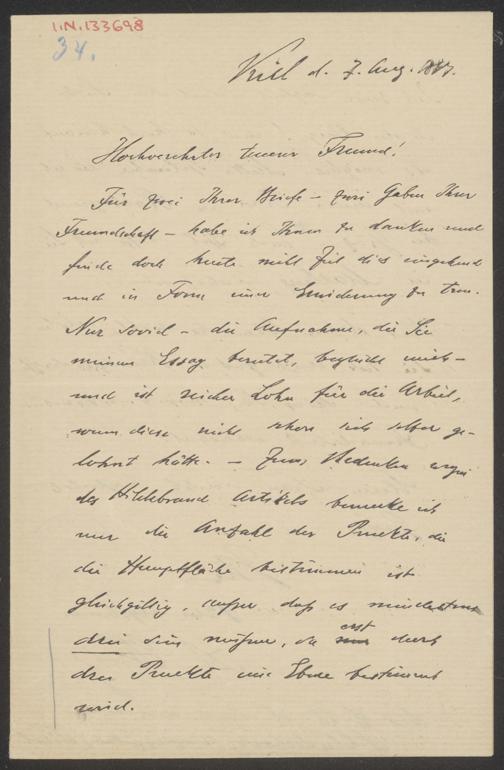 I.N. 133698
34.
Kiel d. 7. Aug.
Hochverehrter teurer Freund!
Für zwei Ihrer Briefe – zwei Gaben Ihrer
Freundschaft – habe ich Ihnen zu danken und
finde doch heute nicht Zeit dies eingehend
und in Form einer Erwiderung zu tun.
Nur soviel – die Aufnahme, die Sie
meinem Essay bereitet, beglückt mich –
und ist reicher Lohn für die Arbeit,
wenn diese nicht schon sich selber ge-
lohnt hätte. – Zum Bedenken wegen
des Hildebrand Artikels bemerke ich
nur die Anzahl der Punkte, die
die Hauptfläche bestimmen ist
gleichgiltig, außer daß es mindestens
drei sein müssen, da erst durch
drei Punkte eine Ebene bestimmt
wird.